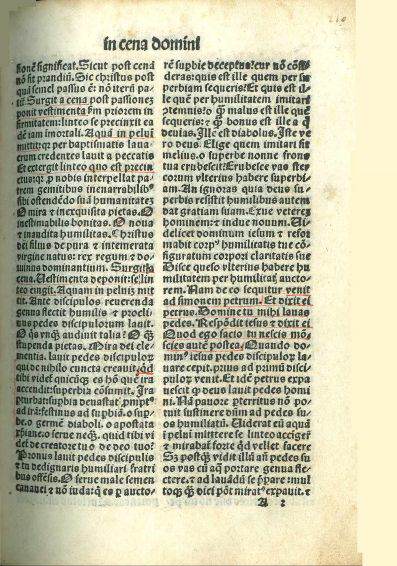 in cena domini
tionẽ significat. Sicut post cenã
nõ fit prandiũ. Sic christus post
quã semel passus ẽ: nõ iterũ pa/
tiẽ. Surgit a cena post passionẽ
ponit vestimenta ẽm priorem in
firmitatem: linteo se precincit ea
dẽ iam imortali. Aquã in pelui
mittit: qz per baptismatis laua/
crum credentes lauit a peccatis
Et extergit linteo quo est precin
ctus: qz p nobis interpellat pa
trem gemitibus inenarrabilib⁹
sibi ostendẽdo suã humanitatẽ
O mira et inexquisita pietas. O
inestimabilis bonitas. O noua
et inaudita humilitas. Christus
dei filius de pura et intemerata
virgine natus: rex regum et do/
minus dominantium. Surgit a
cena. Uestimenta deponit: se lin
teo cingit. Aquam in peluim mit
tit. Ante discipulos reuerenda
genua flectit humilis et procli/
nus pedes discipulorum lauit.
O qs vnqz audiuit talia? O qz
stupenda pietas. O mira dei cle
mentia. lauit pedes discipulorũ
qui de nihilo cuncta creauit. qd
tibi videt quicũqz es hõ quẽ ira
accendit: superbia cõsumit. Ira
pturbat: supbia deuastat. prompt⁹
ad irã: festinus ad supbiã. o sup
be. o germẽ diaboli. o apostata
phiane. o serue neqz. quid tibi vi
det de creatore tuo de deo tuo?
Pronus lauit pedes discipulis
et tu dedignaris humiliari fratri
bus offẽsis. O serue male semen
canauei et nõ iuda: qs ẽ p aucto/
rẽ supbie deceptus: cur nõ cõsi/
deras: quis est ille quem per su
perbiam sequeris? Et quis est il
le quẽ per humilitatem imitari
ɔtemnis? o qz malus est quẽ
sequeris: et qz bonus est ille a q̃
deuias. Ille est diabolus. Iste ve
ro deus. Elige quem imitari sit
melius. o superbe nonne frons
tua erubescit? Erubesce vas ster
corum vlterius habere superbi/
am. An ignoras quia deus su/
perbis resistit humilibus autem
dat gratiam suam. Exue veterẽ
hominem: et indue nouum. Ui/
delicet dominum iesum et refor
mabit corp⁹ humilitatis tue cõ/
figuratum corpori claritatis sue
Disce queso vlterius habere hu
militatem per humilitat⁹ aucto/
rem. Nam de eo sequitur venit
ad simonem petrum. Et dixit ei
petrus. Domine tu mihi lauas
pedes. Respõdit iesus et dixit ei
Quod ego facio tu nescis mõ.
scies autẽ postea. Quando do/
min⁹ iesus pedes discipulorz la/
uare cepit. prius ad primũ disci/
pulorz venit. Et idẽ petrus expa
uescit qz deus lauit pedes homi
ni. Nã pauore pterritus nõ po/
tuit sustinere dñm ad pedes su/
os humiliatũ. Uiderat eũ aquã
ĩ pelui mittere se linteo accĩgerẽ
et mirabat forte qd vellet facere
Sz postqz vidit illũ añ pedes su
os vas cũ aq̃ portare genua fle/
ctere. et ad lauãdũ se ppare: mul
toqz qz dici põt mirat⁹ expauit. et
A 2